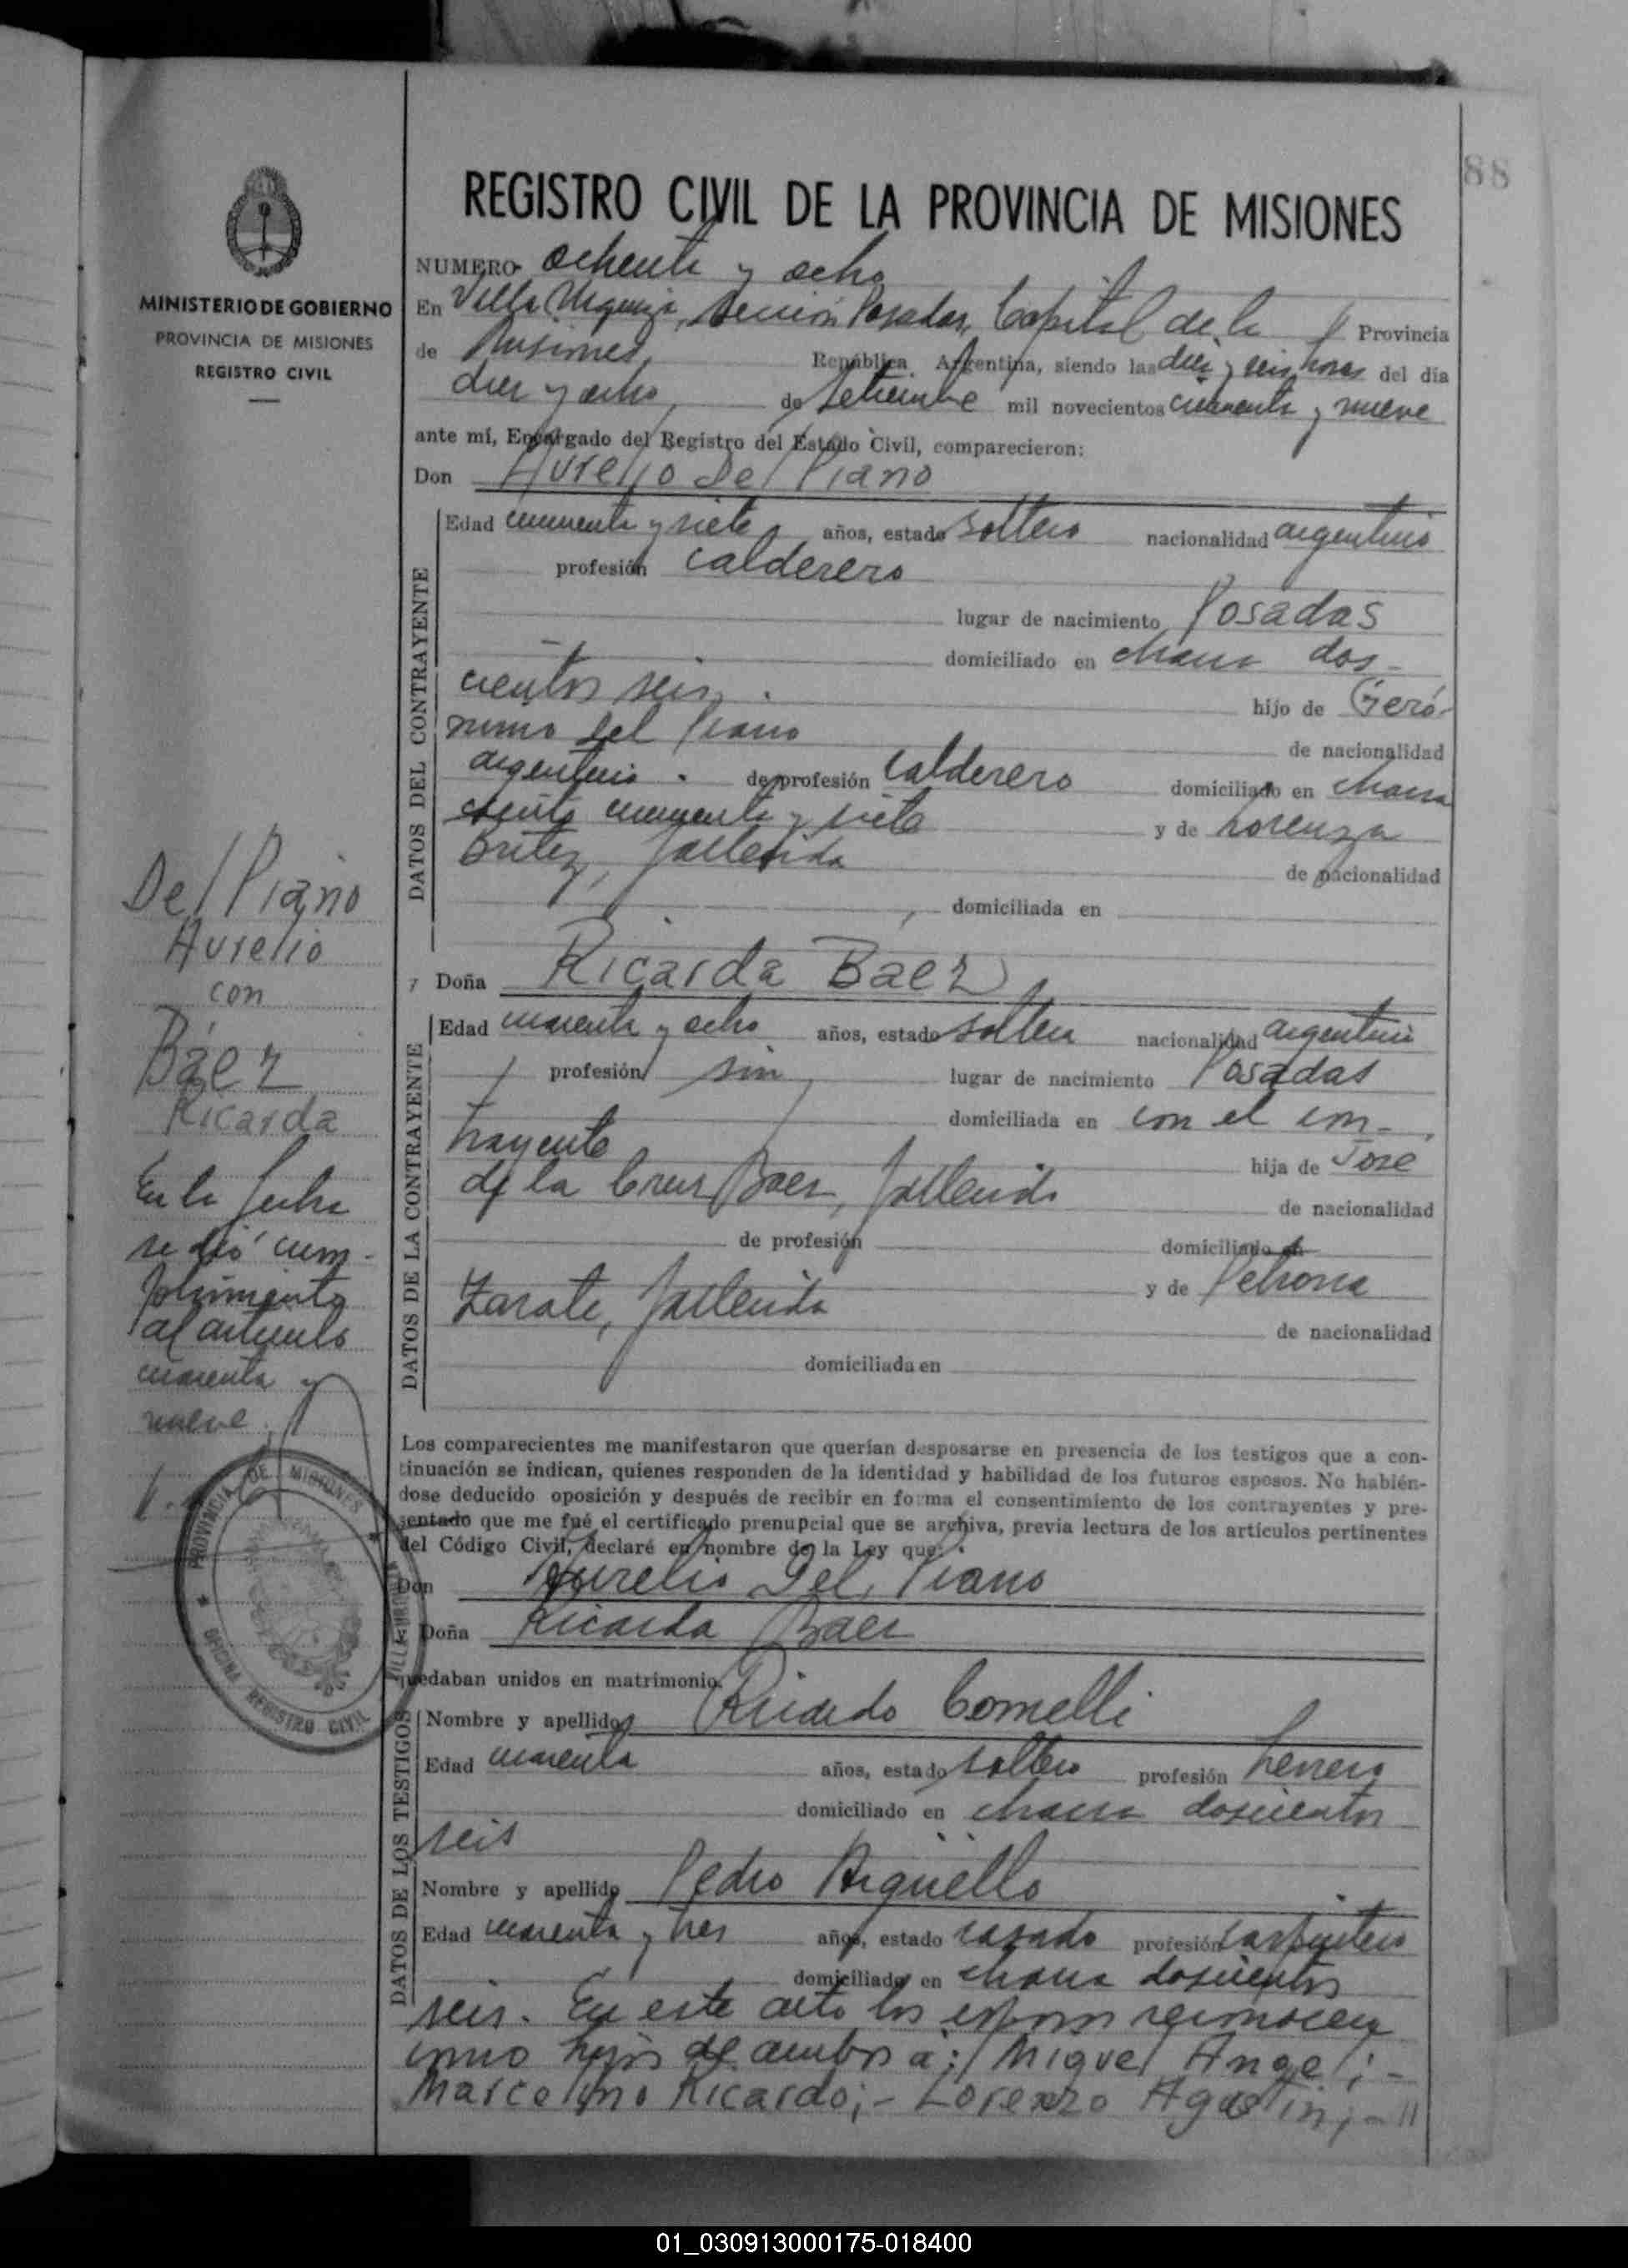 88
REGISTRO CIVIL DE LA PROVINCIA DE MISIONES
MINISTERIO DE GOBIERNO
PROVINCIA DE MISIONES
REGISTRO CIVIL
NUMERO ochenta y ocho
En Villa Urquiza, Sección Posadas, Capital de la Provincia
de Misiones, República Argentina, siendo las diez y seis horas del día
diez y ocho, de setiembre mil novecientos cincuenta y nueve
ante mí, Encargado del Registro del Estado Civil, comparecieron:
Don Aurelio Del Piano
DATOS DEL CONTRAYENTE
Edad cincuenta y siete años, estado soltero nacionalidad argentino
profesión calderero
lugar de nacimiento Posadas
domiciliado en chacra dos-
cientos seis. hijo de Geró-
nimo del Piano de nacionalidad
argentino. de profesión calderero domiciliado en chacra
ciento cincuenta y siete y de Lorenza
Britez, fallecida de nacionalidad
domiciliada en
y Doña Ricarda Baez
DATOS DE LA CONTRAYENTE
Edad cuarenta y ocho años, estado soltera nacionalidad argentina
profesión sin lugar de nacimiento Posadas
domiciliada en con el con-
trayente hija de José
de la Cruz Baez, fallecido de nacionalidad
de profesión domiciliado en
y de Petrona
Zarate, fallecida de nacionalidad
domiciliada en
Los comparecientes me manifestaron que querían desposarse en presencia de los testigos que a con-
tinuación se indican, quienes responden de la identidad y habilidad de los futuros esposos. No habién-
dose deducido oposición y después de recibir en forma el consentimiento de los contrayentes y pre-
sentado que me fué el certificado prenupcial que se archiva, previa lectura de los artículos pertinentes
del Código Civil, declaré en nombre de la Ley que:
Don Aurelio Del Piano
Doña Ricarda Baez
quedaban unidos en matrimonio.
DATOS DE LOS TESTIGOS
Nombre y apellido Ricardo Comelli
Edad cuarenta años, estado soltero profesión herrero
domiciliado en chacra doscientos
seis
Nombre y apellido Pedro Argüello
Edad cuarenta y tres años, estado casado profesión carpintero
domiciliado en chacra doscientos
seis. En este acto los esposos reconocen
como hijos de ambos a: Miguel Angel;-
Marcelino Ricardo;- Lorenzo Agustin;-//
Del Piano
Aurelio
con
Báez
Ricarda
En la fecha
se dió cum-
plimiento
al artículo
cuarenta y
nueve.
PROVINCIA DE MISIONES
OFICINA REGISTRO CIVIL
VILLA URQUIZA
01_030913000175-018400